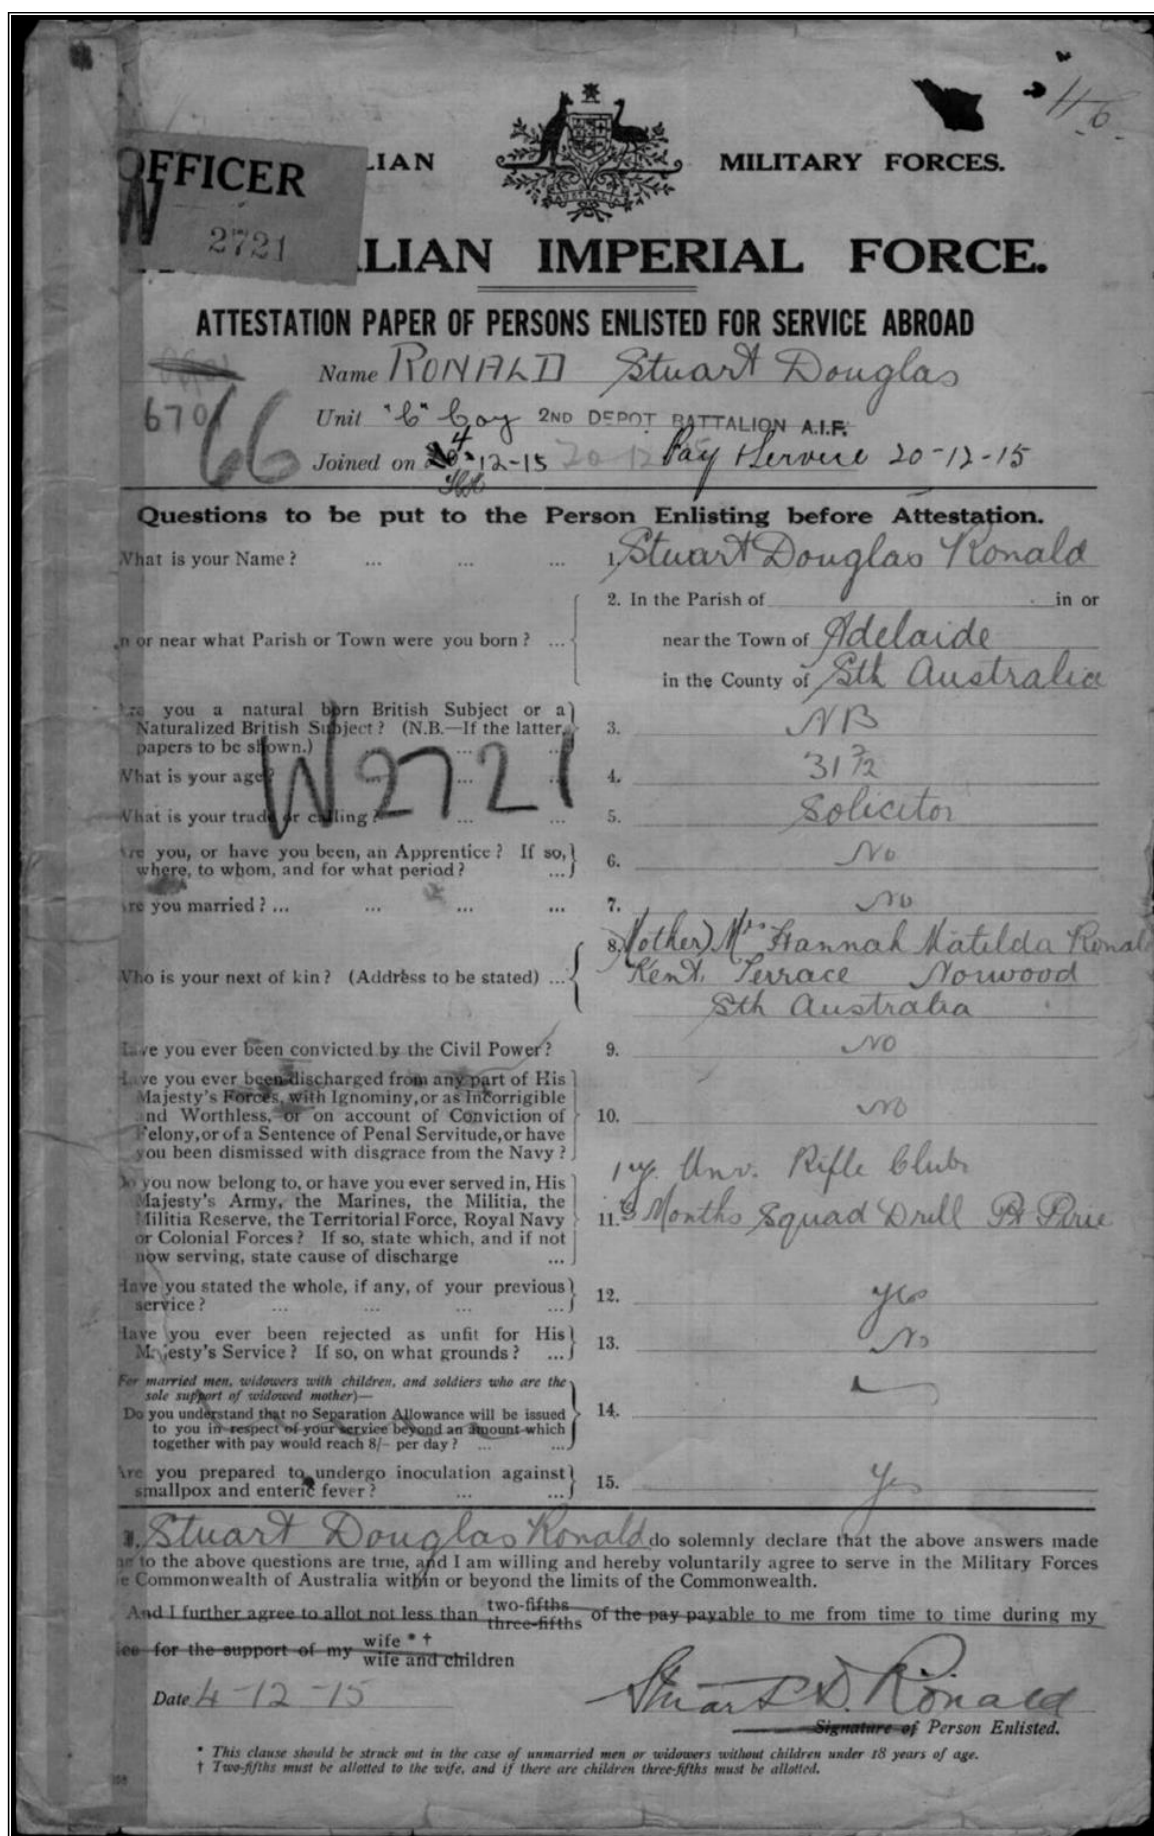 4.6.
OFFICER
W
2721
LIAN MILITARY FORCES.
AUSTRALIA
LIAN IMPERIAL FORCE.
ATTESTATION PAPER OF PERSONS ENLISTED FOR SERVICE ABROAD
Name RONALD Stuart Douglas
670
66
Unit "C" Coy 2ND DEPOT BATTALION A.I.F.
Joined on 4-12-15 20-12 Pay & Service 20-12-15
Questions to be put to the Person Enlisting before Attestation.
What is your Name? ... ... ... 1. Stuart Douglas Ronald
2. In the Parish of in or
n or near what Parish or Town were you born? ... near the Town of Adelaide
in the County of Sth Australia
Are you a natural born British Subject or a
Naturalized British Subject? (N.B.—If the latter, 3. NB
papers to be shown.) ... ...
What is your age? ... ... 4. 31 7/12
W2721
What is your trade or calling? ... ... 5. Solicitor
Are you, or have you been, an Apprentice? If so,
where, to whom, and for what period? ... 6. No
Are you married? ... ... ... ... 7. No
8. (Mother) Mrs Hannah Matilda Ronald
Who is your next of kin? (Address to be stated) ... Kent Terrace Norwood
Sth Australia
Have you ever been convicted by the Civil Power? 9. NO
Have you ever been discharged from any part of His
Majesty's Forces, with Ignominy, or as Incorrigible
and Worthless, or on account of Conviction of 10. No
Felony, or of a Sentence of Penal Servitude, or have
you been dismissed with disgrace from the Navy?
1 yr. Unv. Rifle Club
Do you now belong to, or have you ever served in, His
Majesty's Army, the Marines, the Militia, the
Militia Reserve, the Territorial Force, Royal Navy 11. Months Squad Drill Pt Pirie
or Colonial Forces? If so, state which, and if not
now serving, state cause of discharge ...
Have you stated the whole, if any, of your previous
service? ... ... ... 12. yes
Have you ever been rejected as unfit for His
Majesty's Service? If so, on what grounds? ... 13. No
For married men, widowers with children, and soldiers who are the
sole support of widowed mother)—
Do you understand that no Separation Allowance will be issued 14.
to you in respect of your service beyond an amount which
together with pay would reach 8/- per day? ... ...
Are you prepared to undergo inoculation against
smallpox and enteric fever? ... ... 15. Yes
I, Stuart Douglas Ronald do solemnly declare that the above answers made
to the above questions are true, and I am willing and hereby voluntarily agree to serve in the Military Forces
e Commonwealth of Australia within or beyond the limits of the Commonwealth.
And I further agree to allot not less than two-fifths three-fifths of the pay payable to me from time to time during my
ice for the support of my wife * † wife and children
Date 4-12-15 Stuart D. Ronald
Signature of Person Enlisted.
* This clause should be struck out in the case of unmarried men or widowers without children under 18 years of age.
† Two-fifths must be allotted to the wife, and if there are children three-fifths must be allotted.